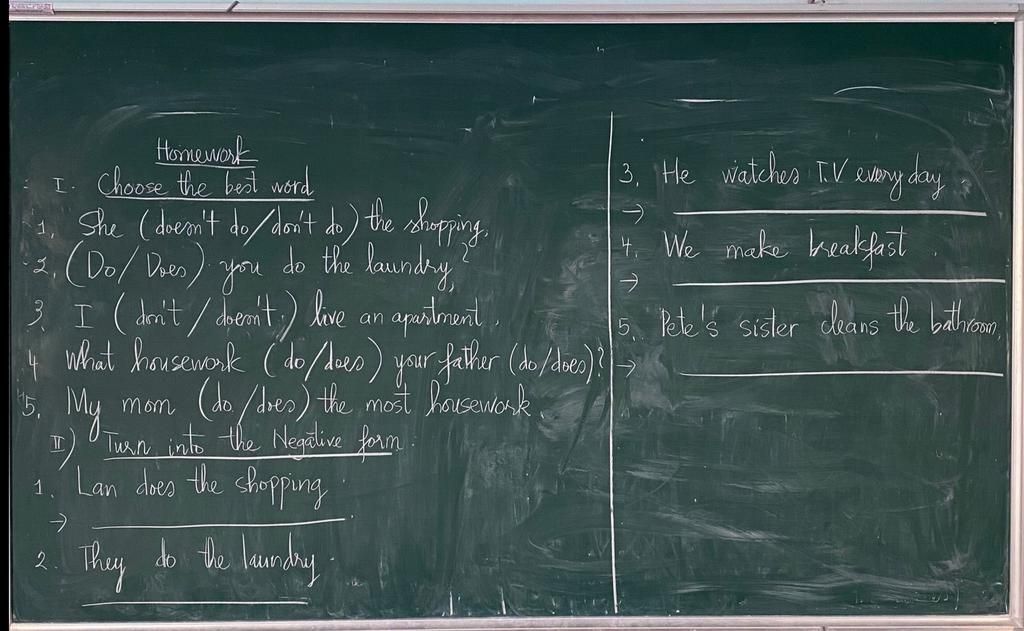 Homework
I. Choose the best word
1. She (doesn't do/don't do) the shopping.
2. (Do/Does) you do the laundry?
3. I (don't/doesn't) live an apartment.
4 What housework (do/does) your father (do/does)?
5. My mom (do/does) the most housework.
II) Turn into the Negative form.
1. Lan does the shopping.
→
2. They do the laundry.
3. He watches T.V every day.
→
4. We make breakfast.
→
5. Pete's sister cleans the bathroom.
→